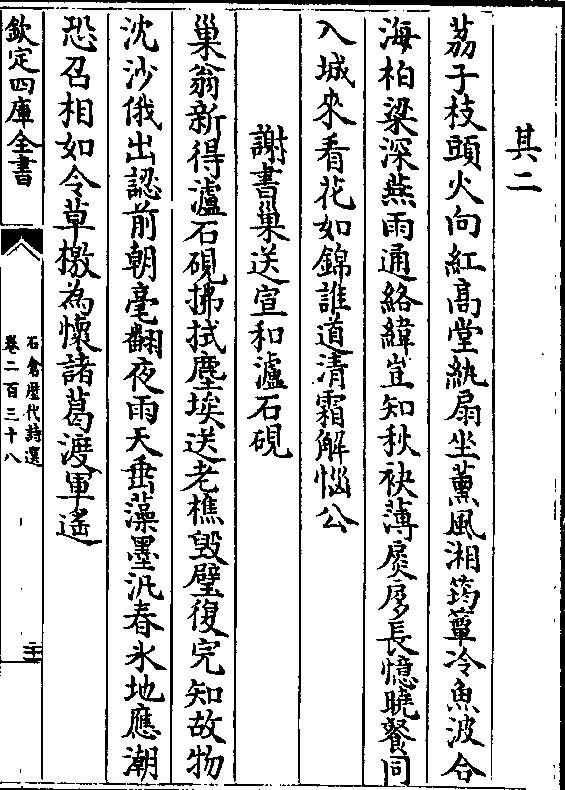 其二
荔子枝頭火向紅髙堂紈扇坐薰風湘筠簟冷魚波合
海柏梁深燕雨通絡緯豈知秋袂薄扊扅長憶曉餐同
入城來看花如錦誰道清霜解惱公
謝書巢送宣和瀘石硯
巢翁新得瀘石硯拂拭塵埃送老樵毀璧復完知故物
沈沙俄出認前朝毫翻夜雨天垂藻墨汎春氷地應潮
恐召相如令草檄為懷諸葛渡軍遙
欽定四庫全書
石倉歴代詩選
卷二百三十八